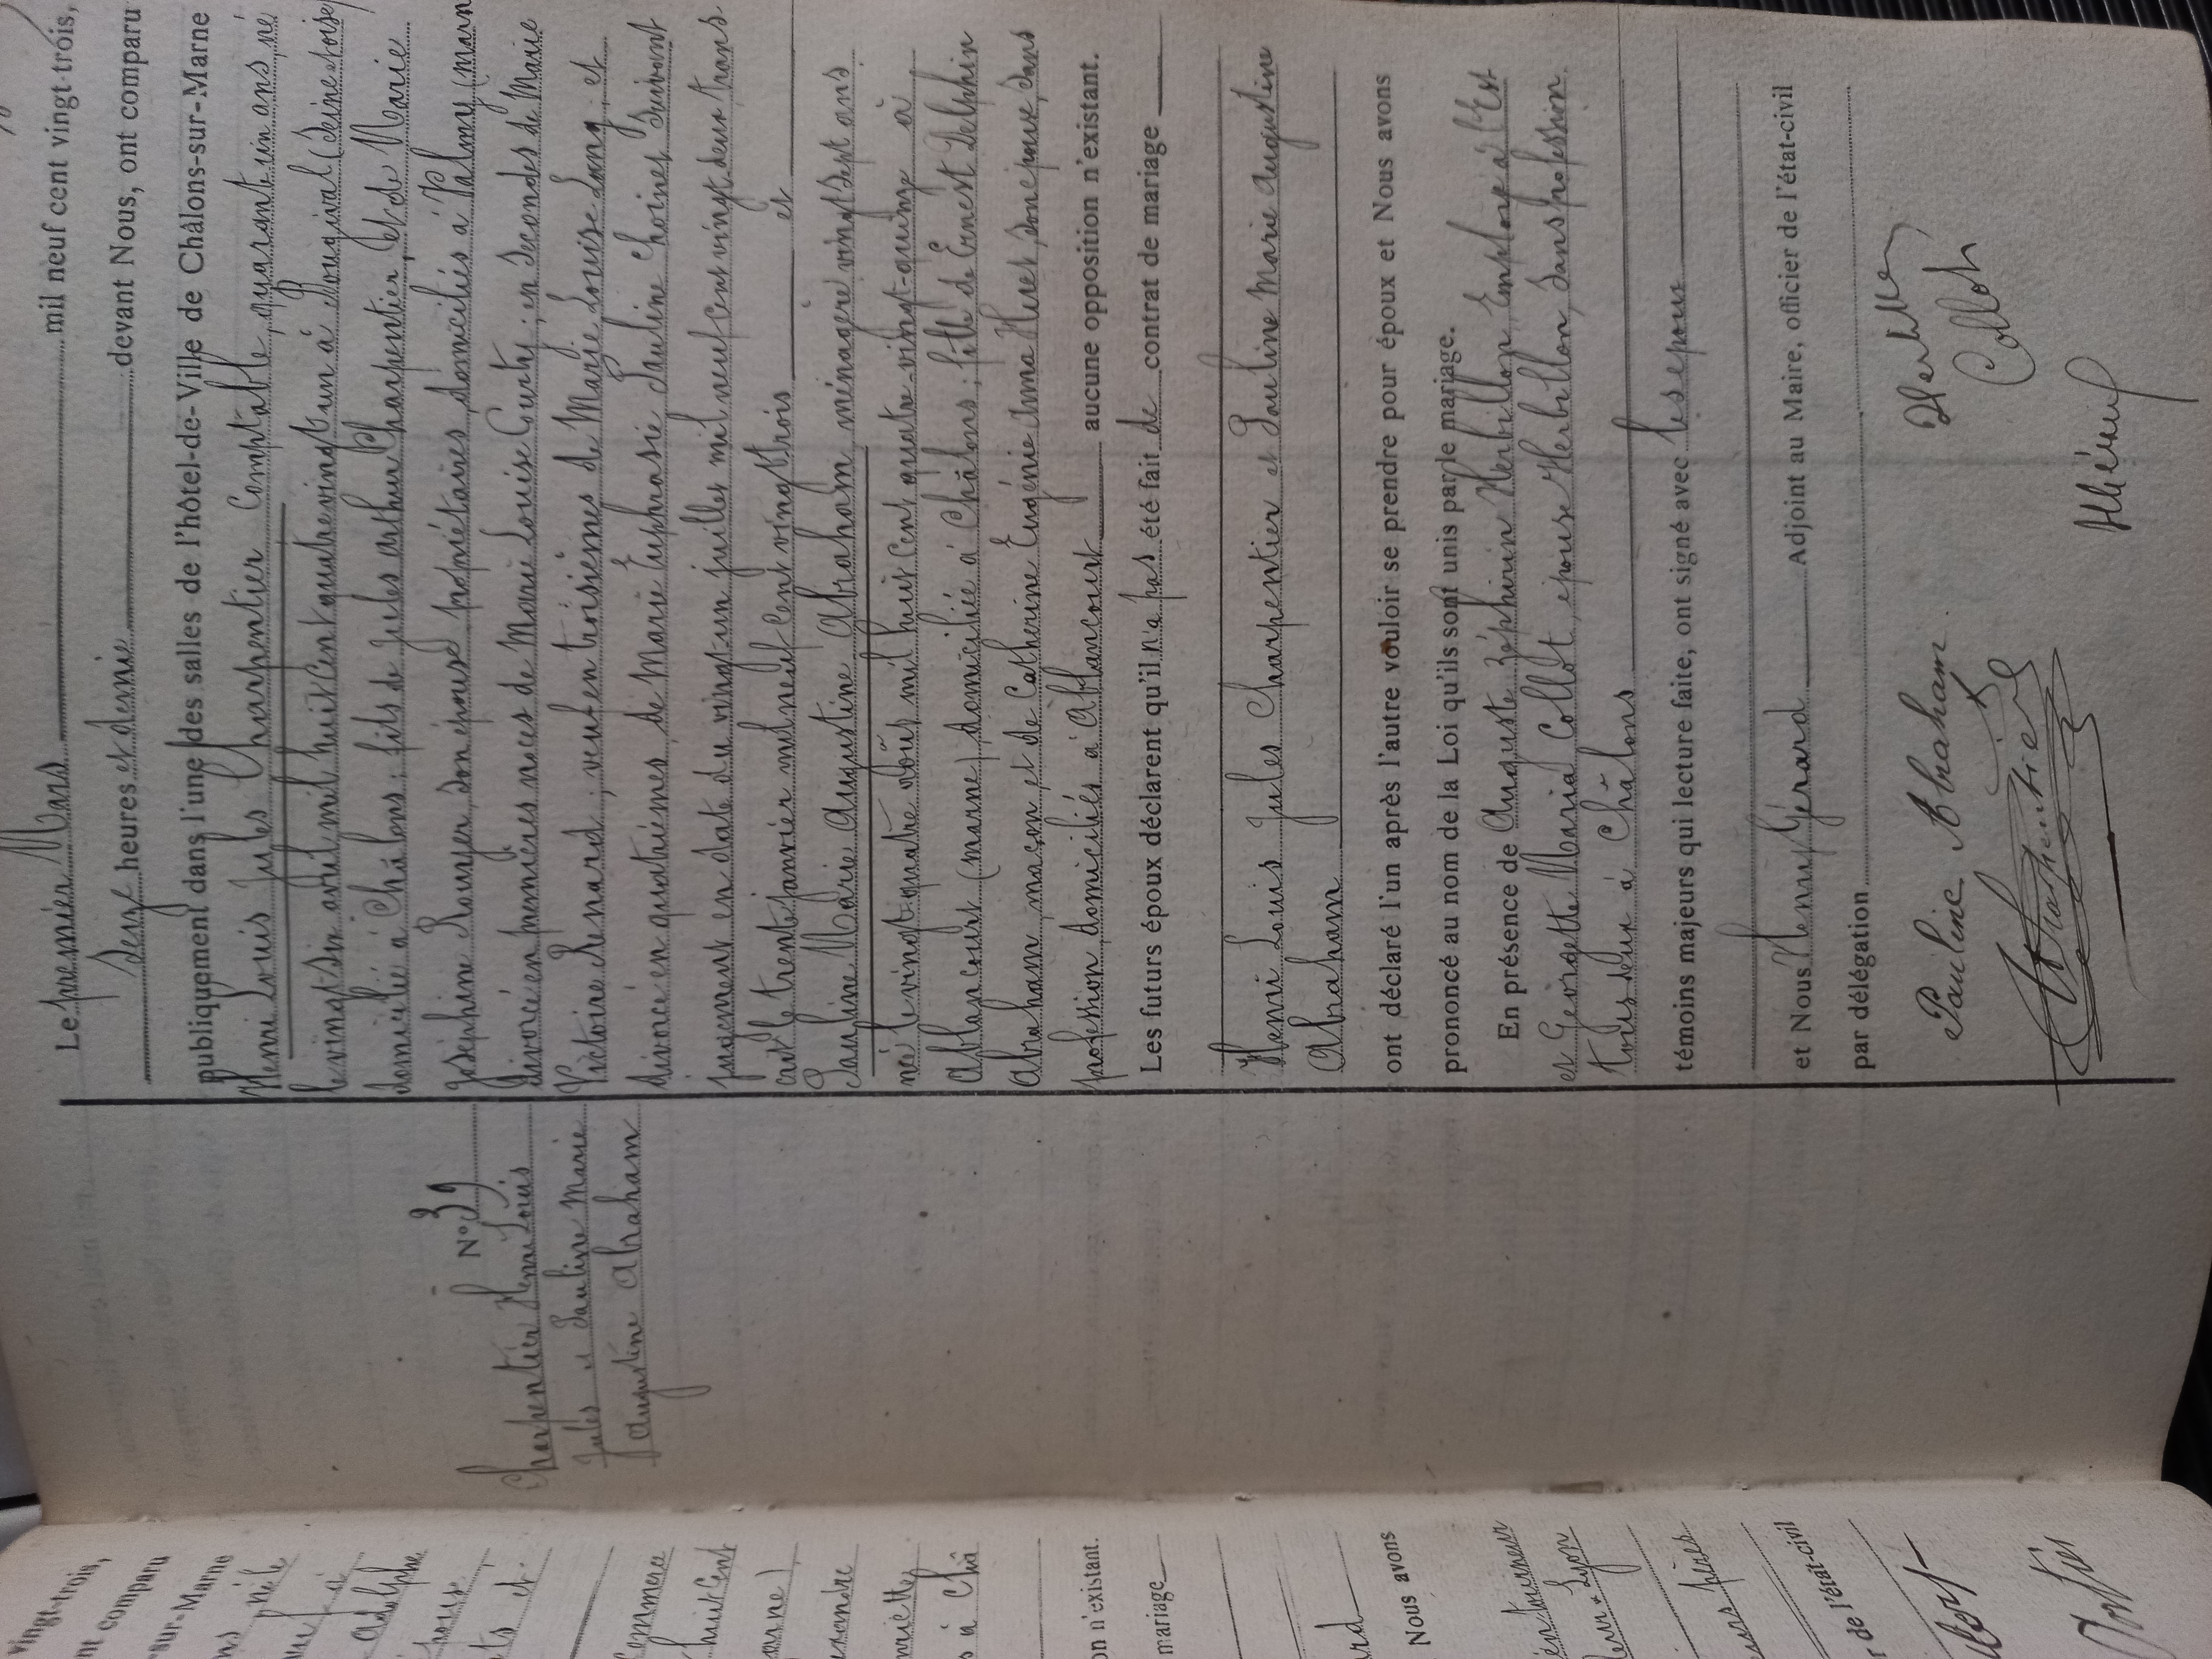 Le premier Mars mil neuf cent vingt-trois,
seize heures et demie devant Nous, ont comparu
publiquement dans l'une des salles de l'hôtel-de-Ville de Châlons-sur-Marne
Henri Louis Jules Charpentier Comptable, quarante un ans, né
le vingt six avril mil huit cent quatre vingt un à Bougival (Seine & Oise)
domicilié à Châlons ; fils de Jules Arthur Charpentier, et de Marie
Joséphine Rouyer, son épouse propriétaires domiciliés à (Marn
divorcé en premières noces de Marie Louise Curty ; en secondes de Marie
Victoire Renard ; veuf en troisièmes de Marie Louise Long ; et
divorcé en quatrièmes, de Marie Euphrasie Pauline Choinet suivant
jugement en date du vingt-un juillet mil neuf cent vingt deux trans
crit le trente janvier mil neuf cent vingt trois et
Pauline Marie Augustine Abraham ménagère vingt sept ans
née le vingt quatre août mil huit cent quatre-vingt-quinze à
Ablancourt (Marne) domiciliée à Châlons ; fille de Ernest Delphin
Abraham maçon et de Catherine Eugénie Irma Huet son épouse, sans
profession domiciliés à Ablancourt aucune opposition n'existant.
Les futurs époux déclarent qu'il n'a pas été fait de contrat de mariage
Henri Louis Jules Charpentier et Pauline Marie Augustine
Abraham
ont déclaré l'un après l'autre vouloir se prendre pour époux et Nous avons
prononcé au nom de la Loi qu'ils sont unis par le mariage.
En présence de Auguste Zéphirin Herbillon, Employé à l'Est
et Georgette Maria Collot, épouse Herbillon, sans profession.
tous deux à Châlons
témoins majeurs qui lecture faite, ont signé avec les époux
et Nous Henri Gérard Adjoint au Maire, officier de l'état-civil
par délégation
Pauline Abraham
Charpentier
Collot
N° 39
Charpentier Henri Louis
Jules et Pauline Marie
Augustine Abraham
vingt-trois,
nt comparu
sur-Marne
Adolphe
on n'existant.
mariage
Nous avons
r de l'état-civil